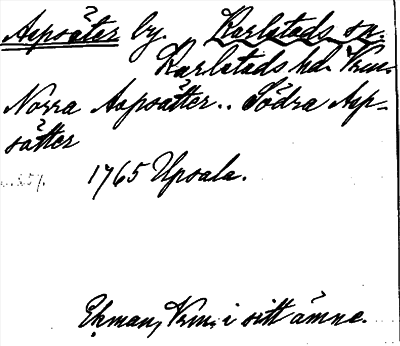 Aspsäter by. Karlstads sn.
Karlstads hd. Vrm.
Norra Aspsätter.. Södra Asp-
sätter
1765 Upsala.
Ekman, Vrm. i sitt ämne.